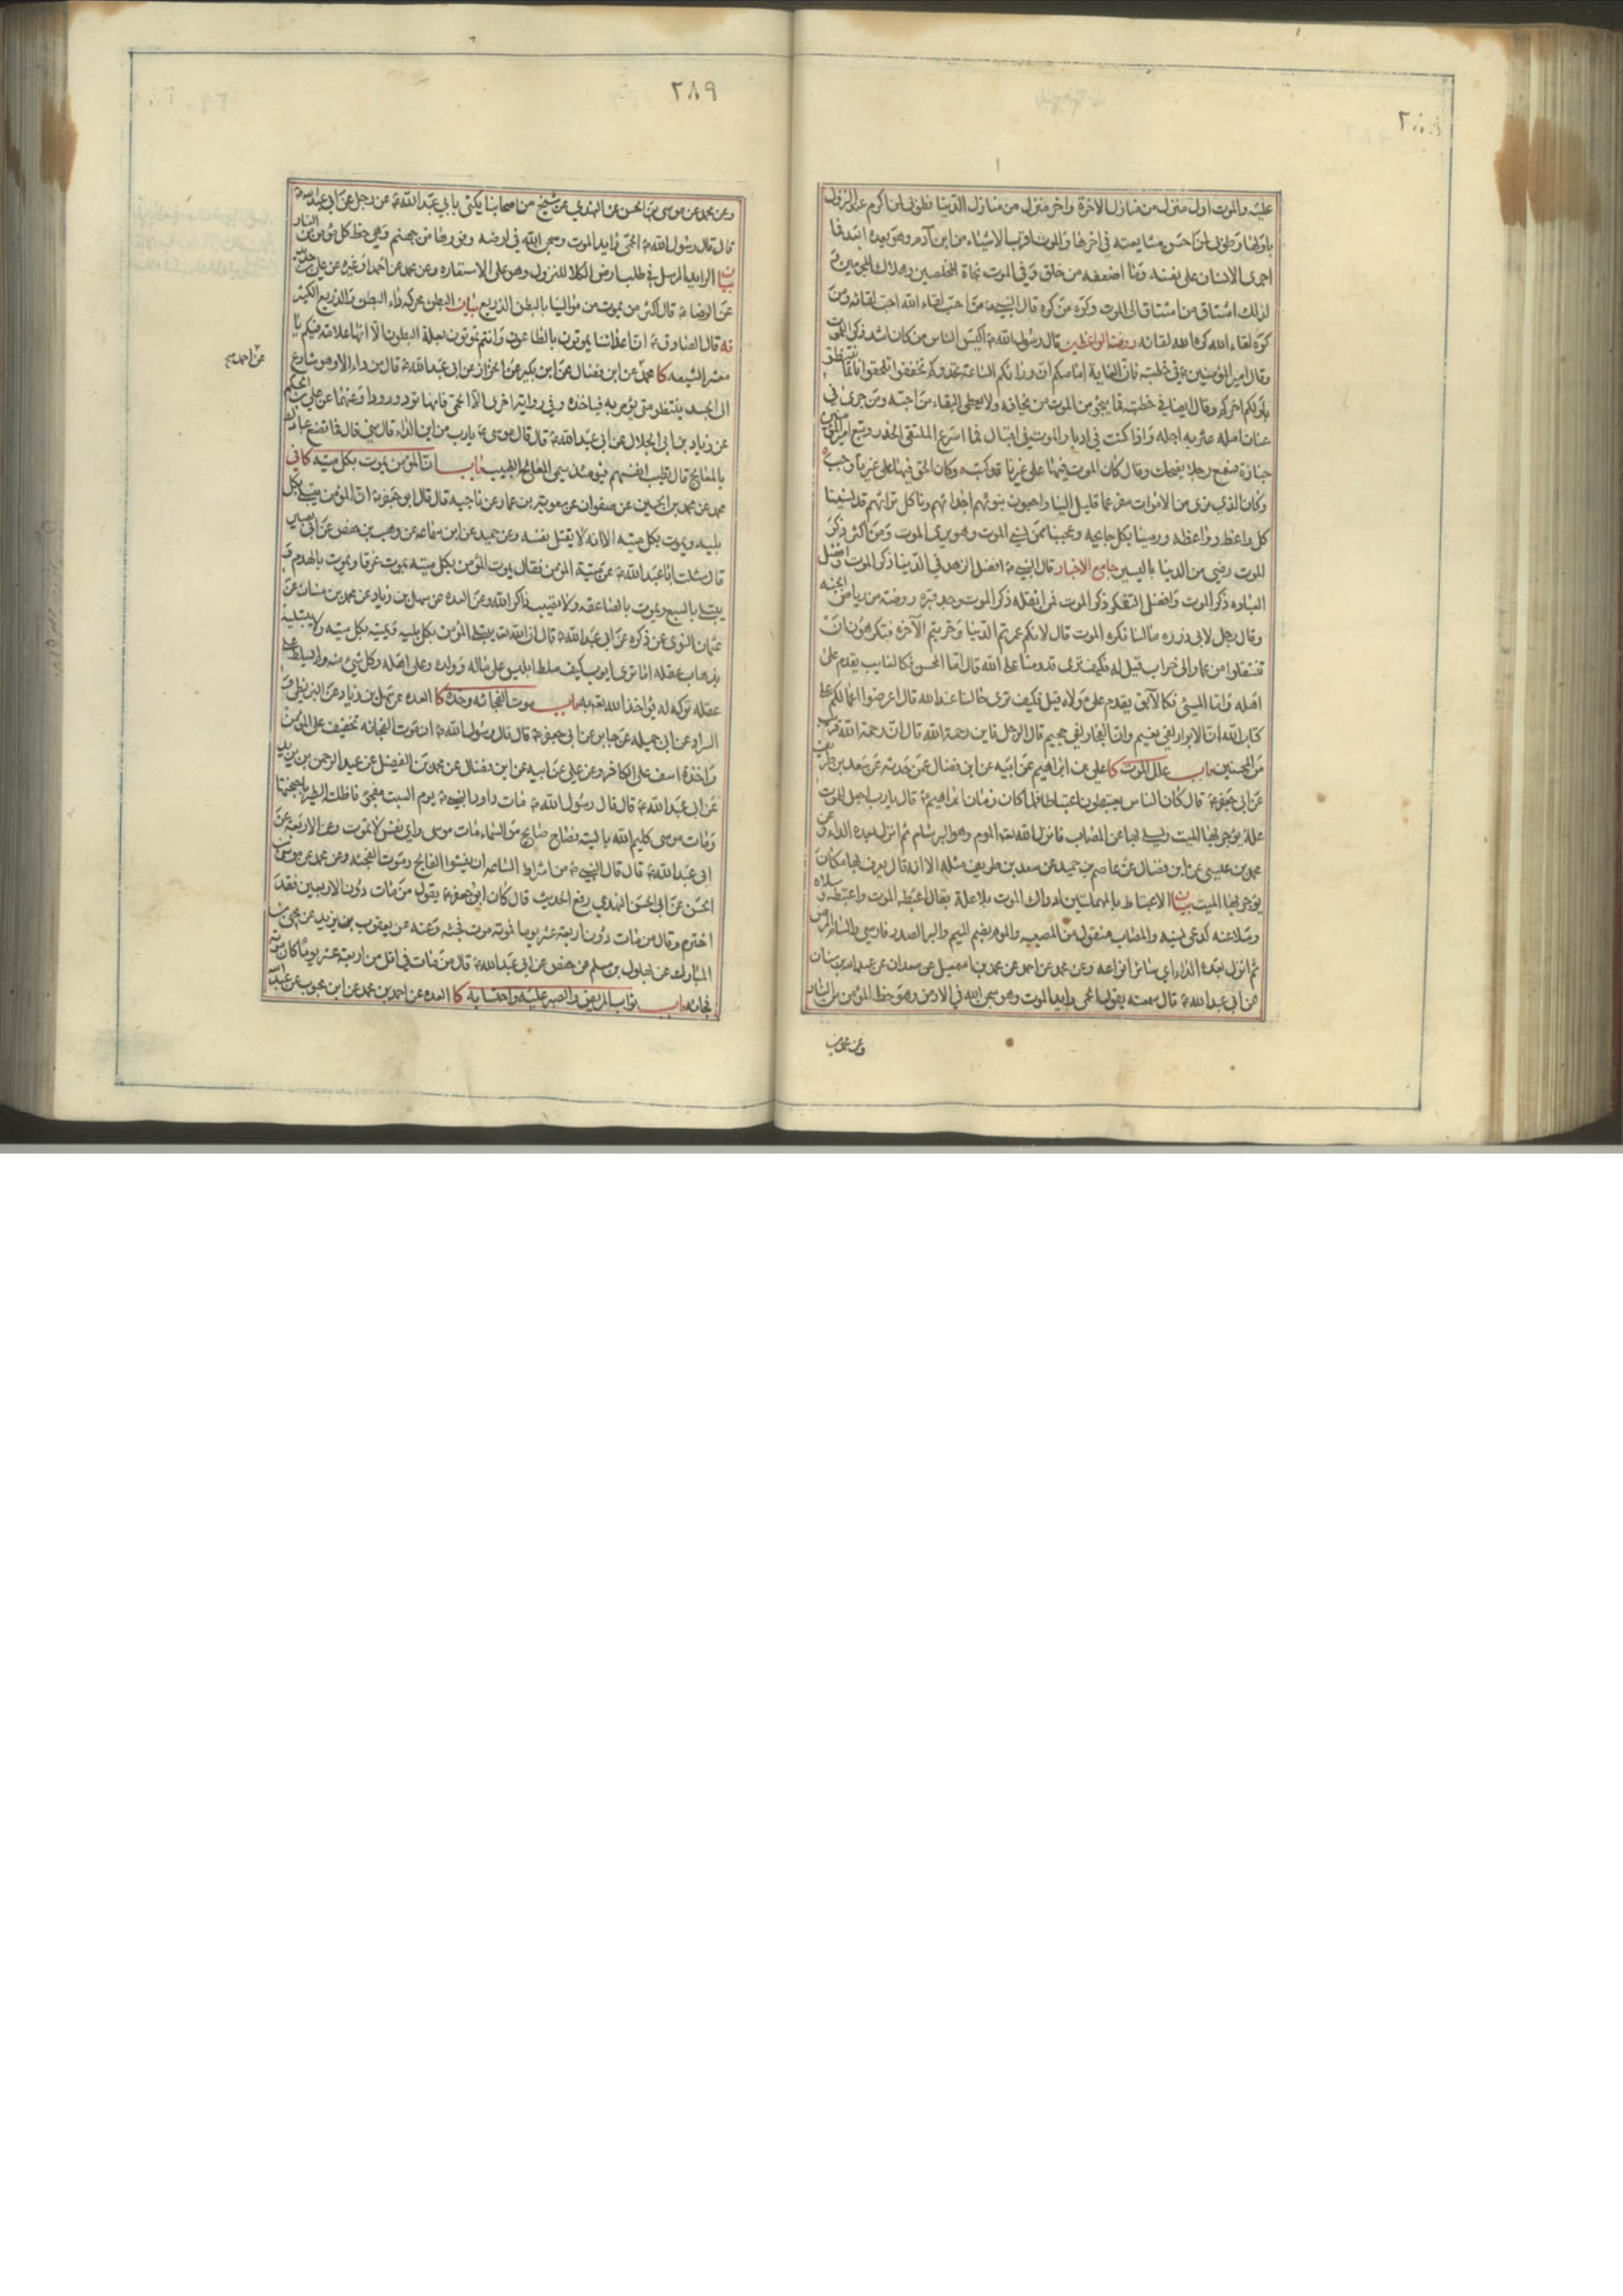 ٢٨٨
عليه والموت اول منزل من منازل الاخرة واخر منزل من منازل الدنيا فطوبى لمن اكرم عند النزول
باولها وطوبى لمن احسن مشايعته في اخرها والموت اقرب الاشياء من ابن آدم وهو يعده ابعد فما
اجرى الانسان على نفسه وما اضعفه من خلق وفي الموت نجاة المخلصين وهلاك المجرمين و
لذلك اشتاق من اشتاق الى الموت وكره من كره قال النبي من احب لقاء الله احب لقائه ومن
كره لقاء الله كره الله لقائه روضة الواعظين قال رسول الله اكيس الناس من كان اشد ذكرا للموت
وقال امير المؤمنين في خطبته فان الغاية امامكم وان ورائكم الساعة تحدوكم تخففوا تلحقوا فانما ينتظر
باولكم اخركم وقال ايضا في خطبته فما ينجو من الموت من يخافه ولا يعطى البقاء من احبه ومن جرى في
عنان امله عثر به اجله واذا كنت في ادبار والموت في اقبال فما اسرع الملتقى الحذر وتبع امير المؤمنين
جنازة فسمع رجلا يضحك وقال كان الموت فيها على غيرنا قد كتب وكان الحق فيها على غيرنا وجب
وكان الذي نرى من الاموات سفر عما قليل الينا راجعون نبوئهم اجداثهم وناكل تراثهم قد نسينا
كل واعظ وواعظة ورمينا بكل جايحه وعجبنا لمن نسي الموت وهو يرى الموت ومن اكثر ذكر
الموت رضي من الدنيا باليسير جامع الاخبار قال النبي افضل الزهد في الدنيا ذكر الموت وافضل
العباده ذكر الموت وافضل التفكر ذكر الموت فمن اثقله ذكر الموت وجد قبره روضة من رياض الجنه
وقال رجل لابي ذر ره مالنا نكره الموت قال لانكم عمرتم الدنيا وخربتم الآخره فتكرهون ان
تنتقلوا من عمار الى خراب قيل له فكيف ترى قدومنا على الله قال اما المحسن فكالغايب يقدم على
اهله واما المسئ فكالآبق يقدم على مولاه قيل فكيف ترى حالنا عند الله قال اعرضوا اعمالكم على
كتاب الله ان الابرار لفي نعيم وان الفجار لفي جحيم قال الرجل فاين رحمة الله قال ان رحمة الله قريب
من المحسنين باب علل الموت كا علي بن ابراهيم عن ابيه عن ابن فضال عمن حدثه عن سعد بن طريف
عن ابي جعفر قال كان الناس يعتبطون اعتباطا فلما كان زمان ابراهيم قال يا رب اجعل للموت
علة يوجر بها الميت ويسلي بها عن المصاب فانزل الله الموم وهو البرسام ثم انزل بعده الداء و عن
محمد بن عيسى عن ابن فضال عن عاصم بن حميد عن سعد بن طريف مثله الا انه قال يعرف بها مكان
يوجر بها الميت بيان الاعتباط بالمهملتين ادراك الموت بلا علة يقال اعبطه الموت واعتبطه و سلاه
وسلا عنه كدعى نسيه والمصاب منقول من المصيبه والموم بضم الميم والبر الصدر فارسي والسام المرض
ثم انزل بعده الداء اي سائر انواعه وعن محمد عن احمد عن محمد بن اسمعيل عن سعدان عن عبد الله بن سنان
عن ابي عبد الله قال سمعته يقول الحمى رايد الموت وهو سجن الله في الارض وهو حظ المؤمن من النار
وعن محمد بن
٢٨٩
وعن محمد عن موسى بن الحسن عن الهندي عن شيخ من اصحابنا يكنى بابي عبد الله عن رجل عن ابي عبد الله
قال قال رسول الله الحمى رايد الموت وسجن الله في ارضه وفورها من جهنم وهي حظ كل مؤمن من النار
بيان الرايد المرسل في طلب ارض الكلا للنزول وهو على الاستعاره وعن محمد عن احمد او غيره عن علي بن حديد
عن الرضا قال اكثر من يموت من موالينا بالبطن الذريع بيان البطن محركه داء البطن والذريع الكثير
يه قال الصادق ان اعدائنا يموتون بالطاعون وانتم تموتون بعلة البطون الا انها علامة فيكم يا
معشر الشيعه كا محمد عن ابن فضال عن ابن بكير عن الخزاز عن ابي عبد الله قال من داء الا وهو شارع
عن احمد صح
الى الجسد ينتظر متى يؤمر به فياخذه وفي رواية اخرى الا الحمى فانها ترد ورودا وعنهما عن علي بن الحكم
عن زياد بن ابي الحلال عن ابي عبد الله قال قال موسى يا رب من اين الداء قال مني قال فما تصنع عبادك
بالمعالج قال تطيب انفسهم فيومئذ سمي المعالج الطبيب باب ان المؤمن يموت بكل ميته كافي
محمد عن محمد بن الحسين عن صفوان عن معوية بن عمار عن ناجيه قال قال ابو جعفر ان المؤمن يبتلي بكل
بليه ويموت بكل ميته الا انه لا يقتل نفسه وعن حميد عن ابن سماعه عن وهيب بن حفص عن ابي بصير
قال سئلت ابا عبد الله عن ميتة المؤمن فقال يموت المؤمن بكل ميته يموت غرقا ويموت بالهدم و
يبتلى بالسبع ويموت بالصاعقه ولا تصيب ذاكرا لله وعن العده عن سهل بن زياد عن محمد بن سنان عن
عثمان النوى عن ذكره عن ابي عبد الله قال ان الله يبتلي المؤمن بكل بليه ويميته بكل ميته ولا يبتليه
بذهاب عقله اما ترى ايوب كيف سلط ابليس على ماله وولده وعلى اهله وكل شيء منه ولم يسلط على
عقله تركه له يوحد الله به باب موت الفجائه وحده كا العده عن سهل بن زياد عن البزنطي و
السراد عن ابي جميله عن جابر عن ابي جعفر قال قال رسول الله ان موت الفجائه تخفيف على المؤمن
واخذة اسف على الكافر وعن علي عن ابيه عن ابن فضال عن محمد بن الفضيل عن عبد الرحمن بن يزيد
عن ابي عبد الله قال قال رسول الله مات داود النبي يوم السبت مفجئ فاظلته الطير باجنحتها
ومات موسى كليم الله بالتيه فصاح صايح من السماء مات موسى واي نفس لا تموت وعن الاربعة عن
ابي عبد الله قال قال النبي من اشراط الساعه ان يفشوا الفالج وموت الفجئه وعن محمد عن موسى بن
الحسن عن ابي الحسن النهدي رفع الحديث قال كان ابو جعفر يقول من مات دون الاربعين فقد
اخترم وقال من مات دون اربعة عشر يوما فموته موت فجئه وعنه عن يعقوب بن يزيد عن يحيى بن
المبارك عن بهلول بن مسلم عن حفص عن ابي عبد الله قال من مات في اقل من اربعة عشر يوما كان موته
فجائه باب ثواب المريض والصبر عليه واحتسابه كا العده عن احمد بن محمد عن ابن محبوب عن عبد الله